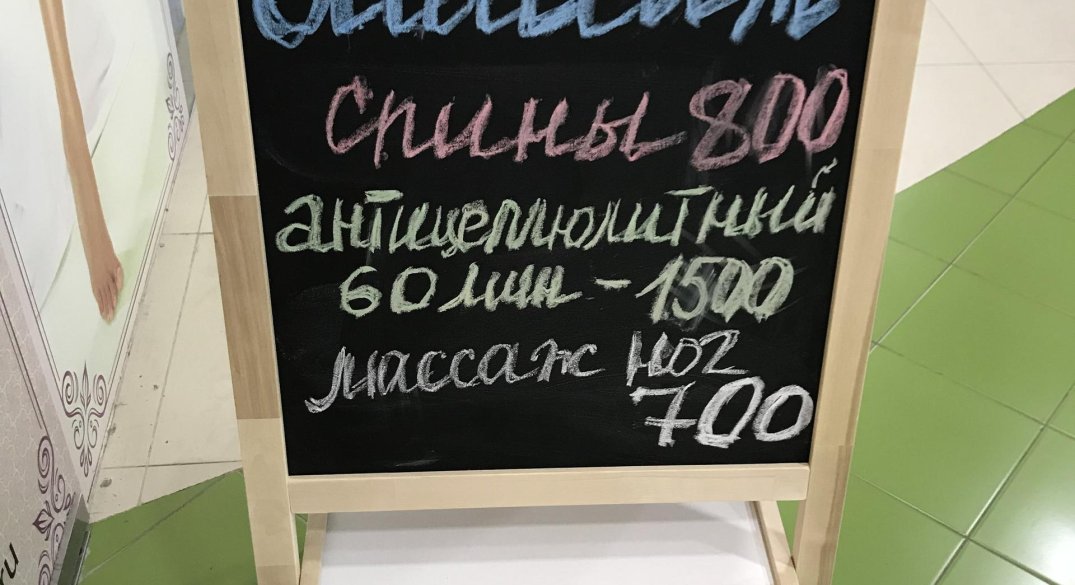 спины 800
антицеллюлитный
60 мин - 1500
массаж ног
700
ru